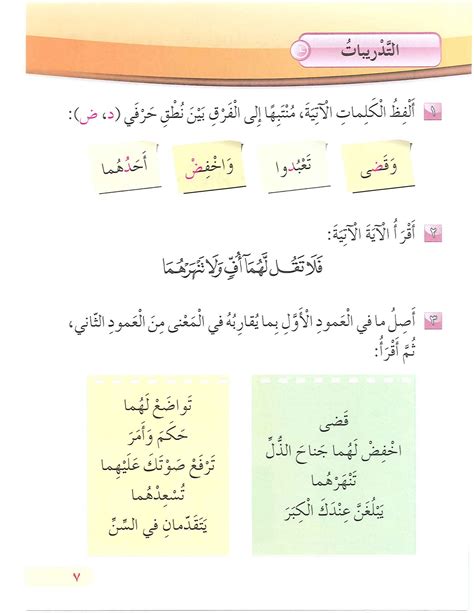 التَّدْريباتُ
١ أَلْفِظُ الْكَلِماتِ الْآتِيَةَ، مُنْتَبِهًا إِلى الْفَرْقِ بَيْنَ نُطْقِ حَرْفَي (د، ض):
وَقَضى تَعْبُدوا وَاخْفِضْ أَحَدُهُما
٢ أَقْرَأُ الْآيَةَ الْآتِيَةَ:
فَلَا تَقُل لَّهُمَآ أُفٍّ وَلَا نَنْهَرْهُمَا
٣ أَصِلُ ما في الْعَمودِ الْأَوَّلِ بِما يُقارِبُهُ في الْمَعْنى مِنَ الْعَمودِ الثّاني،
ثُمَّ أَقْرَأُ:
قَضى
اخْفِضْ لَهُما جَناحَ الذُّلِّ
تَنْهَرْهُما
يَبْلُغَنَّ عِنْدَكَ الْكِبَرَ
تَواضَعْ لَهُما
حَكَمَ وَأَمَرَ
تَرْفَعْ صَوْتَكَ عَلَيْهِما
تُسْعِدْهُما
يَتَقَدَّمانِ في السِّنِّ
٧